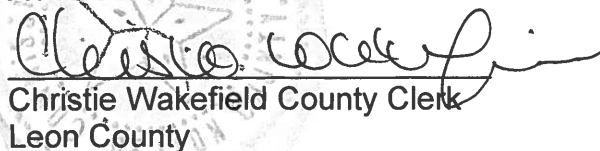 Christie Wakefield
Christie Wakefield County Clerk
Leon County